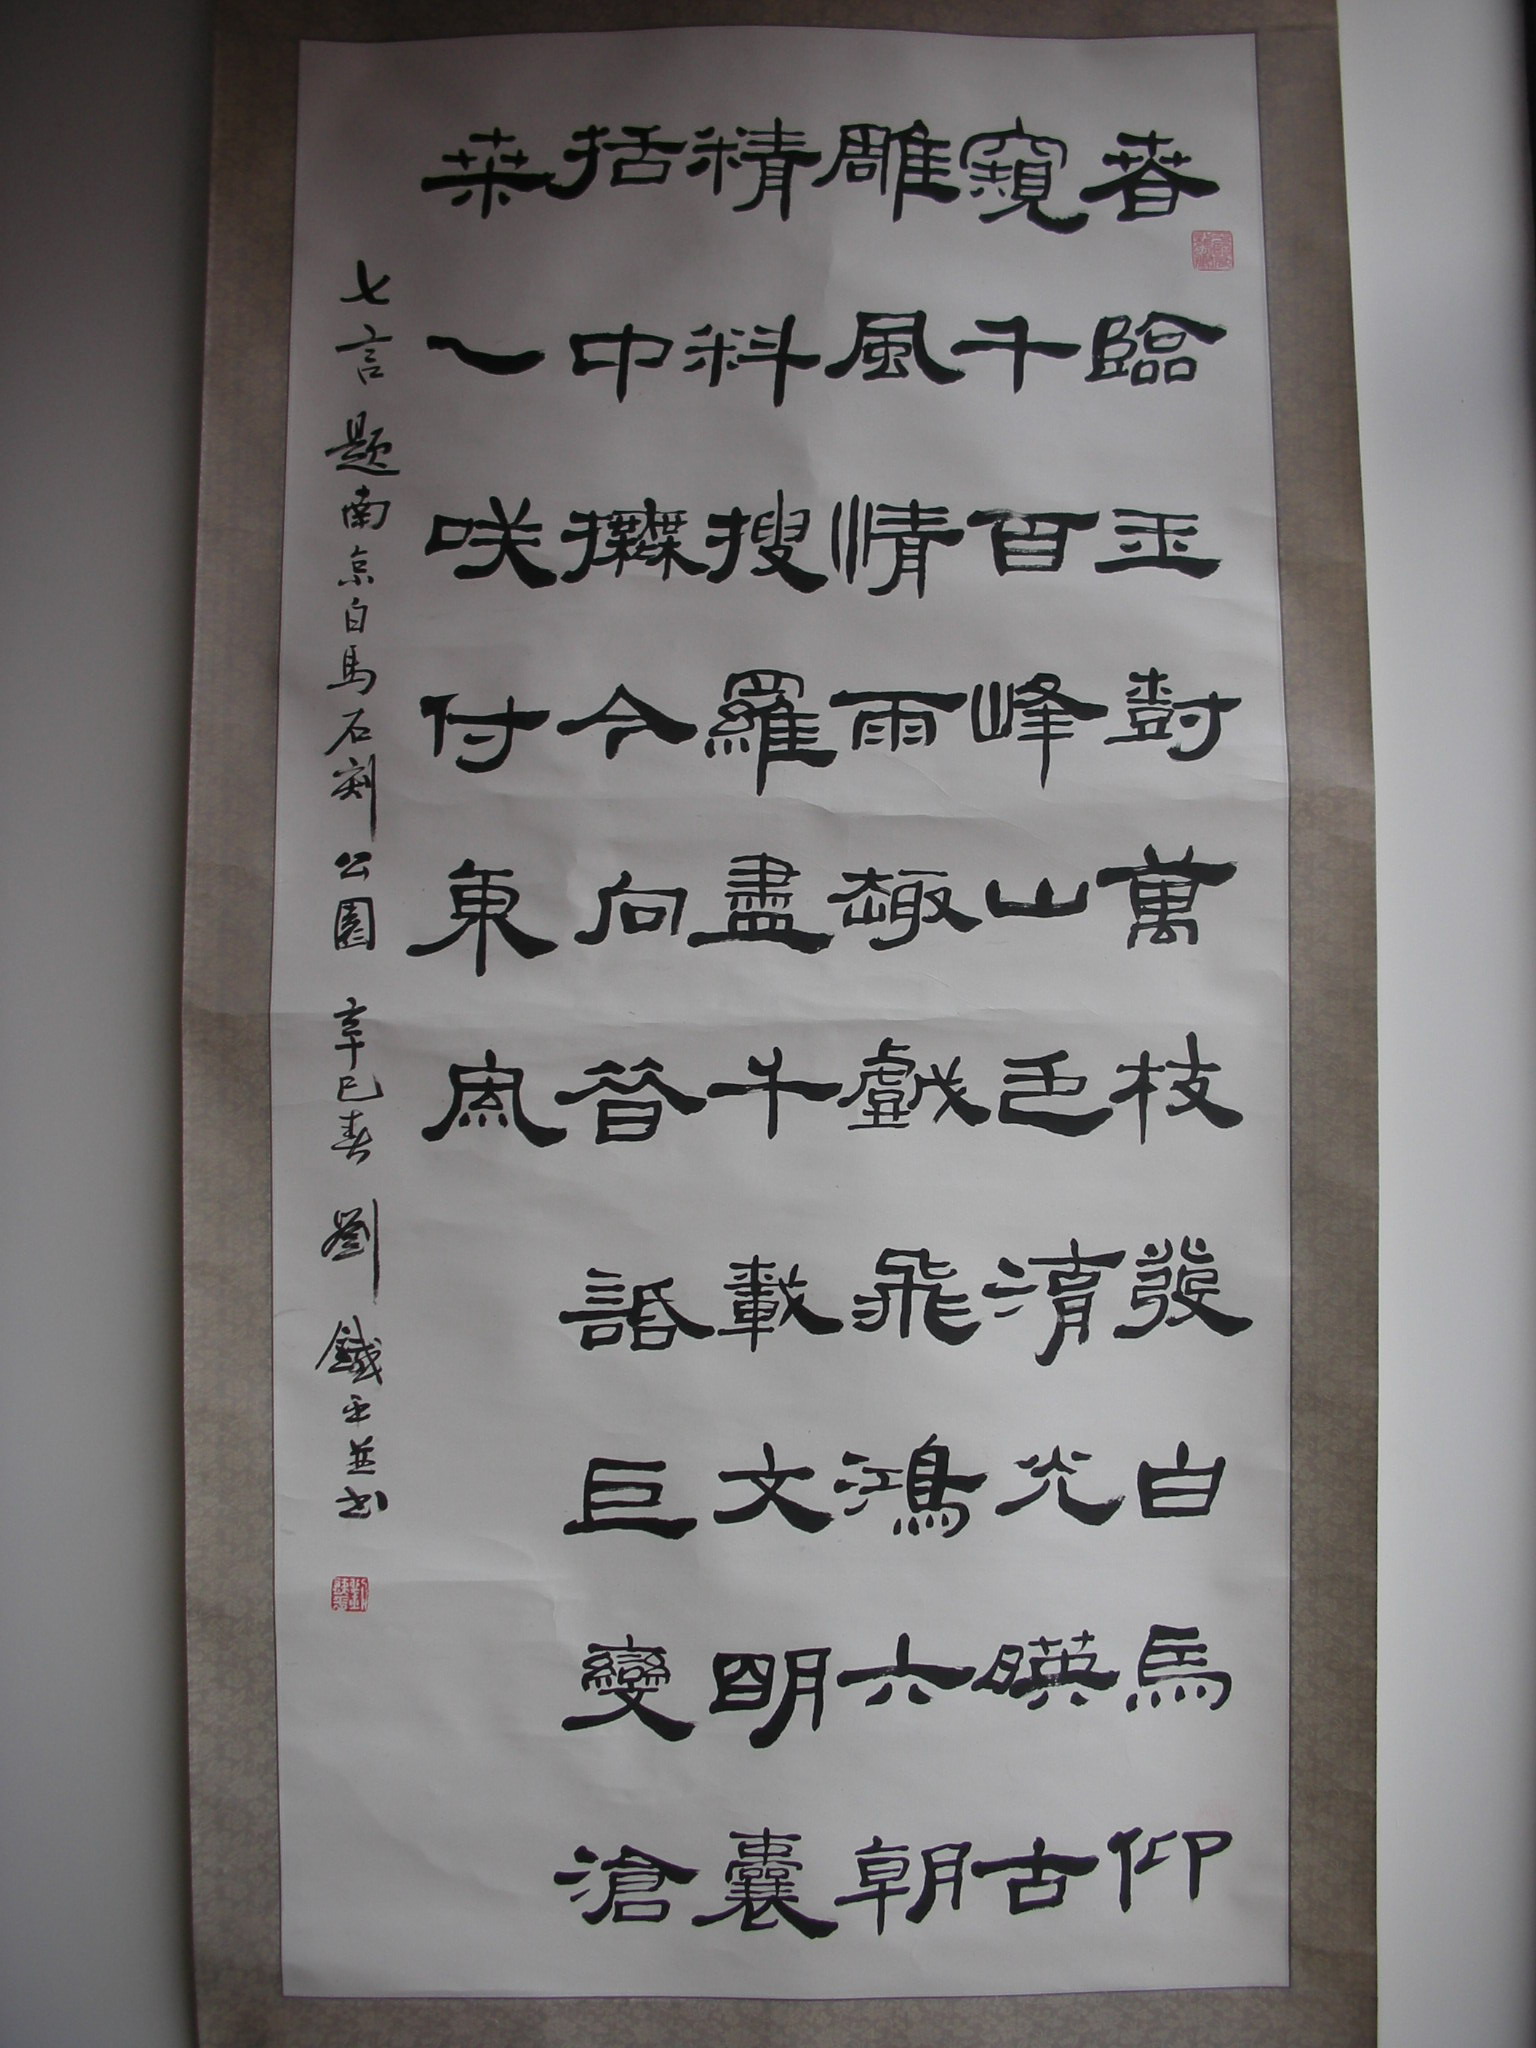 春臨玉樹萬枝發白馬仰
窺千百峰山色湖光暎古
雕風情雨趣戲飛鴻六朝
精料搜羅盡千載文明囊
括中撫今向昔話巨變滄
桒一咲付東風
七言題南京白馬石刻公園 辛巳春 劉鐵平並書